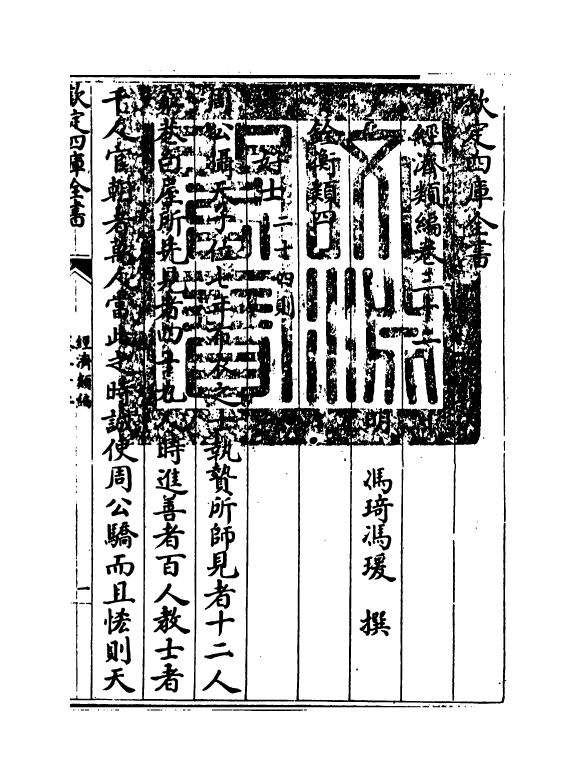 欽定四庫全書
經濟類編卷二十
明 馮琦馮瑗 撰
銓衡類四
好士 二十四則
周公攝天子位七年布衣之士執贄所師見者十二人
窮巷白屋所先見者四十九人時進善者百人教士者
千人官朝者萬人當此之時誠使周公驕而且恡則天
欽定四庫全書
經濟類編
一